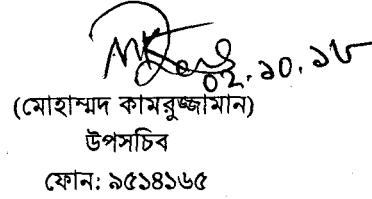 ০২.১০.১৮
(মোহাম্মদ কামরুজ্জামান)
উপসচিব
ফোন: ৯৫১৪১৬৫